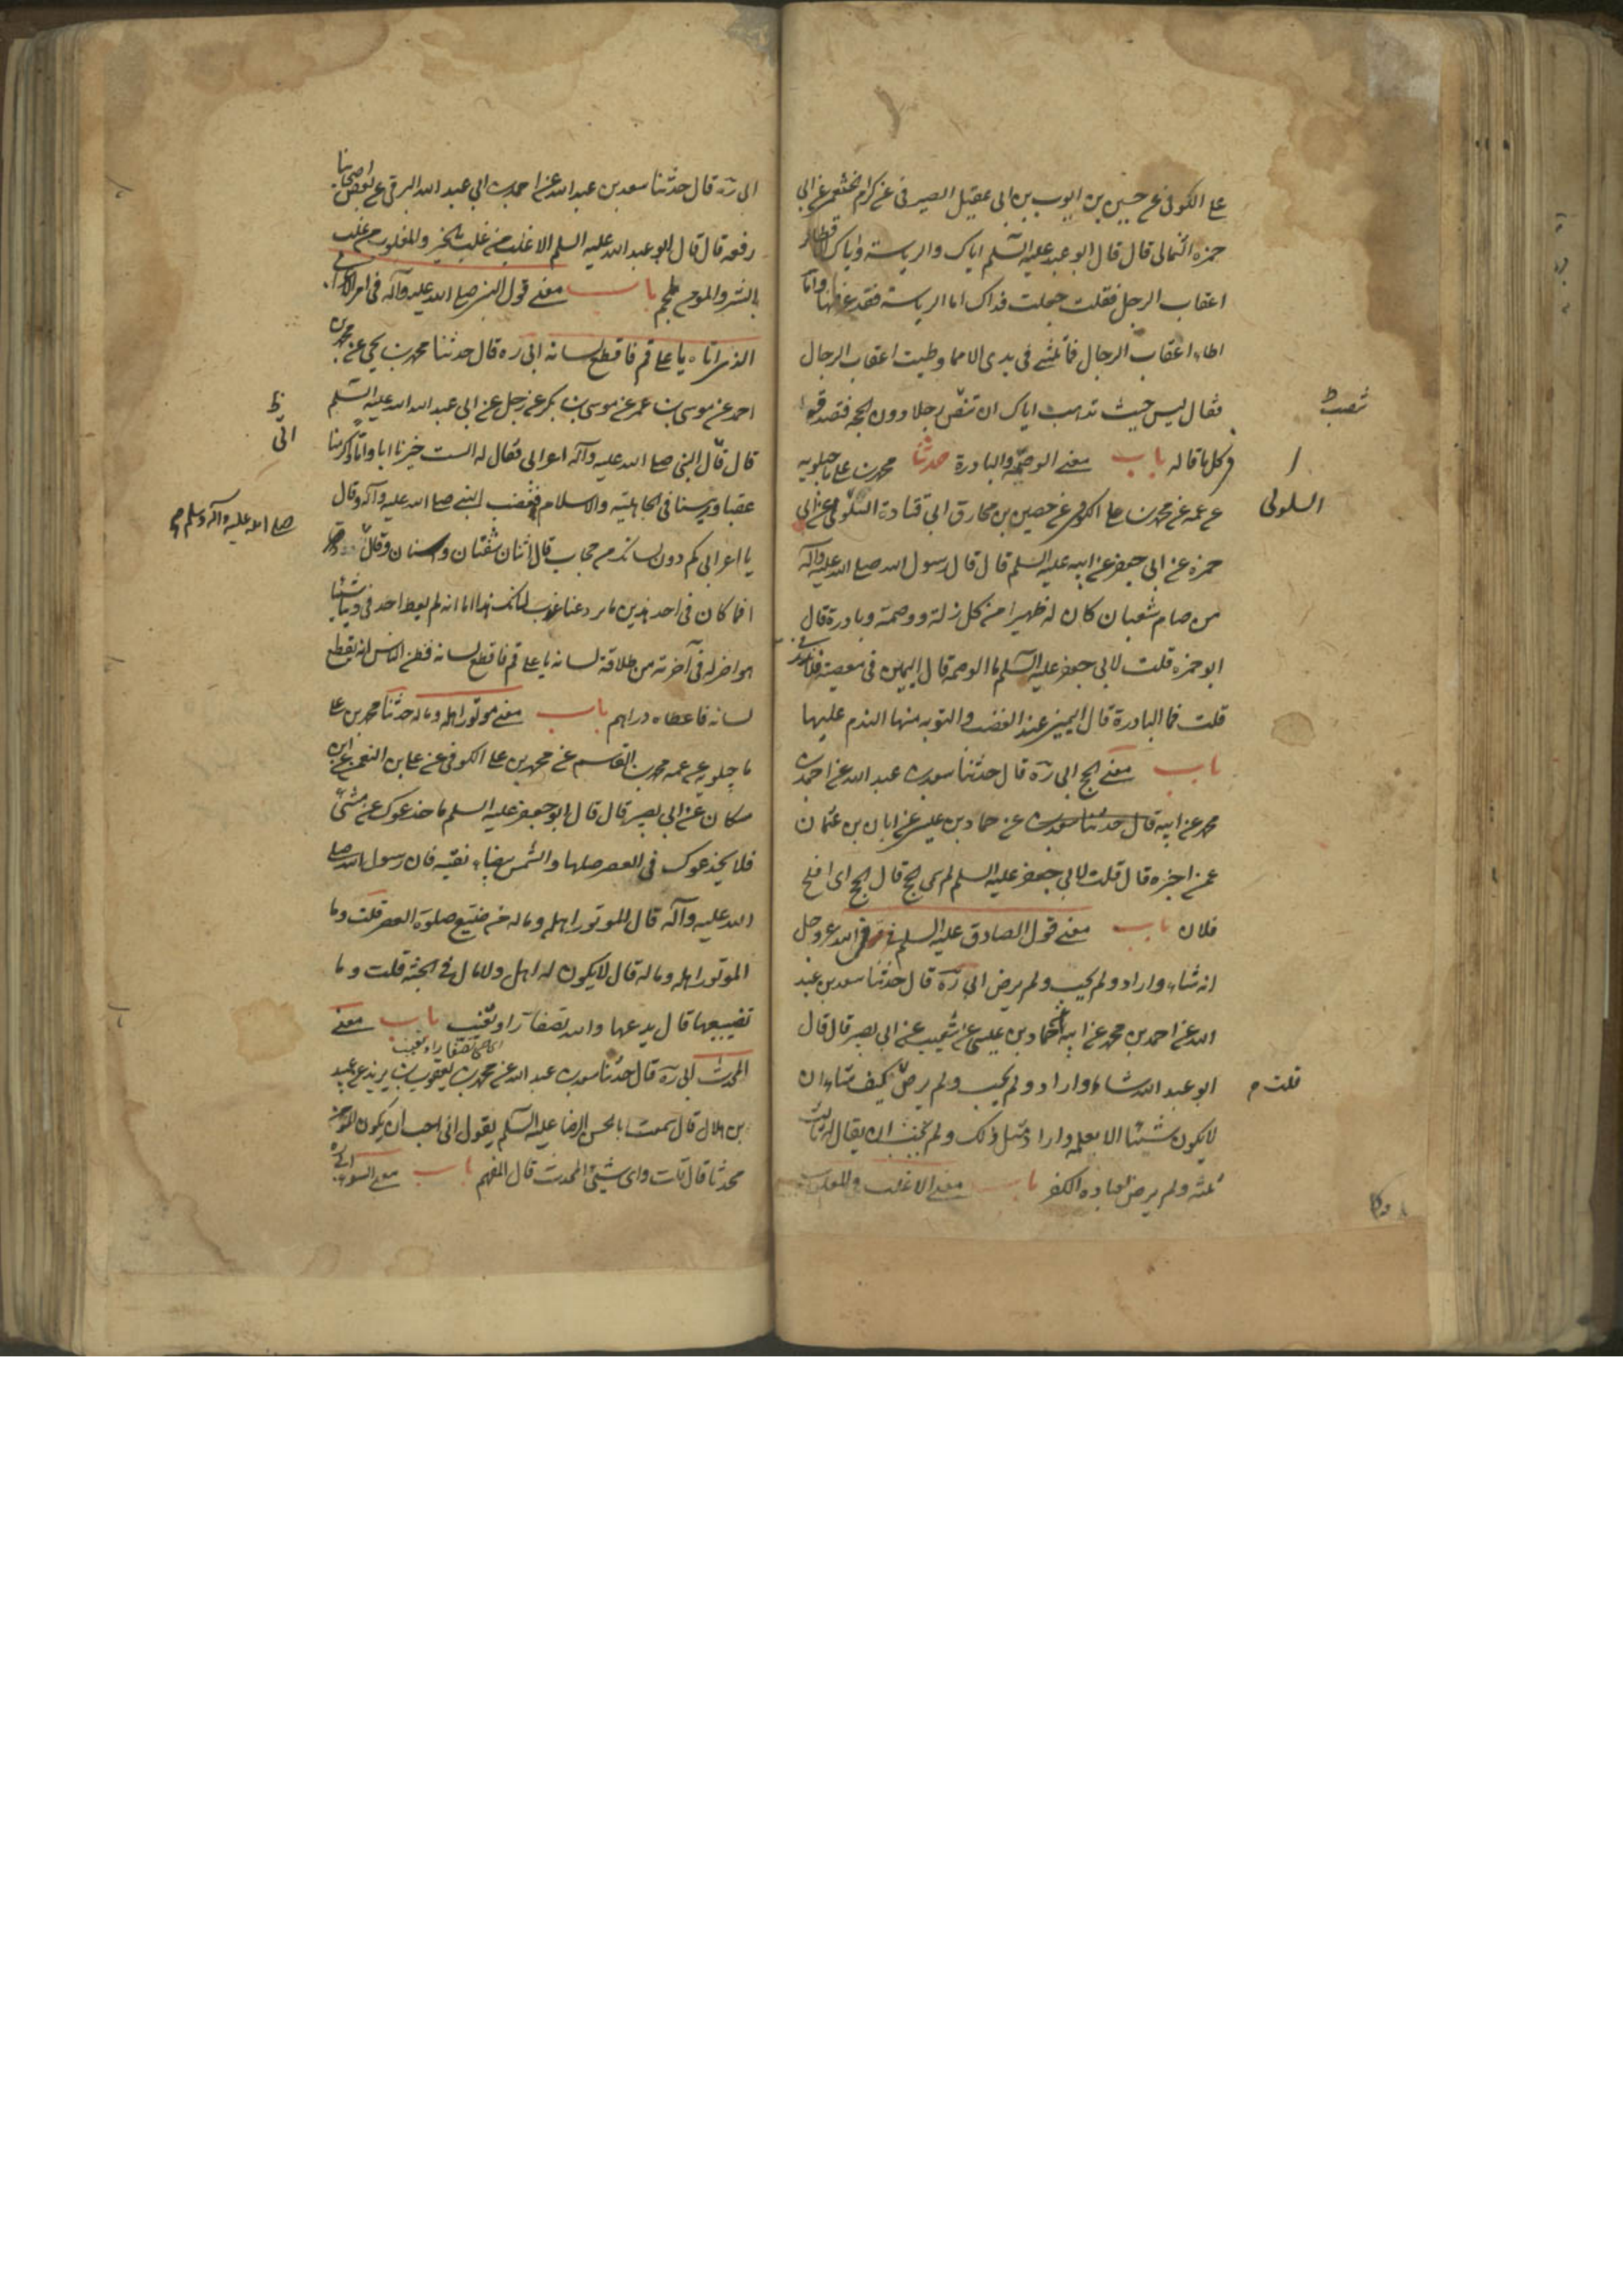 علي الكوفي عن حسين بن ايوب بن ابي عقيل الصيرفي عن كرام الخثعمي عن ابي
حمزه الثمالي قال قال ابو عبد عليه السلم اياك والرياسة واياك
اعقاب الرجل فقلت جعلت فداك اما الرياسة فقد عرفتها واما
اطاء اعقاب الرجال فما ثلثي في يدي الا مما وطيت اعقاب الرجال
فقال ليس حيث تذهب اياك ان تنصب رجلا دون الحجه فتصدقه
تنصب
في كل ما قاله باب معنى الوصمة والبادرة حدثنا محمد بن علي ماجيلويه
عن عمه عن محمد بن علي الكوفي عن حصين بن مخارق ابي قتادة السلولي عن ابي
السلولي
حمزه عن ابي جعفر عن ابيه عليه السلم قال قال رسول الله صلي الله عليه وآله
من صام شعبان كان له ظهيرا من كل زلة ووصمة وبادرة قال
ابو حمزه قلت لابي جعفر عليه السلم ما الوصمه قال اليمين في معصية فلا نذر
قلت فما البادرة قال اليمين عند الغضب والتوبه منها الندم عليها
باب معنى الحج ابي ره قال حدثنا سعد بن عبد الله عن احمد بن
محمد عن ابيه قال حدثنا سعد بن عن حماد بن عيسي عن ابان بن عثمان
عمن اخبره قال قلت لابي جعفر عليه السلم لم سمي الحج قال الحج اي افلح
فلان باب معنى قول الصادق عليه السلم في الله عز وجل
انه شاء واراد ولم يحب ولم يرض ابي ره قال حدثنا سعد بن عبد
الله عن احمد بن محمد عن ابيه عن حماد بن عيسي عن شعيب عن ابي بصير قال قال
ابو عبد الله شاء واراد ولم يحب ولم يرض كيف شاء ان
قلت م
لا يكون شيئا الا بعلمه واراد مثل ذلك ولم يحب ان يقال له ثالث
ثلثه ولم يرض لعباده الكفر باب معنى الاغلب والمغلوب
ابي ره قال حدثنا سعد بن عبد الله عن احمد بن ابي عبد الله البرقي عن بعض اصحابنا
رفعه قال قال ابو عبد الله عليه السلم الاغلب من غلب بالخير والمغلوب من غلب
بالشر والمومن ملجم باب معنى قول النبي صلي الله عليه وآله في امر الاعرابي
الذي اتاه يا علي قم فاقطع لسانه ابي ره قال حدثنا محمد بن يحيي عن محمد بن
احمد عن موسي بن عمر عن موسي بن بكر عن رجل عن ابي عبد الله عليه السلم
قال قال النبي صلي الله عليه وآله اعرابي فقال له الست خيرنا ابا واما واكرمنا
اتي
عقبا ورئيسنا في الجاهلية والاسلام فغضب النبي صلي الله عليه وآله وقال
صلي الله عليه وآله وسلم
يا اعرابي كم دون لسانك من حجاب قال اثنان شفتان واسنان وقال
افما كان في احد هذين ما يرد عنا غرب لسانك هذا اما انه لم يعط احد في دنياه شيئا
هو اضر له في آخرته من طلاقة لسانه يا علي قم فاقطع لسانه فظن الناس انه يقطع
لسانه فاعطاه دراهم باب معنى موتور اهله وماله حدثنا محمد بن علي
ماجيلويه عن عمه محمد بن القاسم عن محمد بن علي الكوفي عن علي بن النعمن عن ابن
مسكان عن ابي بصير قال قال ابو جعفر عليه السلم ما خدعوك عن شي
فلا يخدعوك في العصر صلها والشمس بيضاء نقيه فان رسول الله صلي
الله عليه وآله قال الموتور اهله وماله من ضيع صلوة العصر قلت وما
الموتور اهله وماله قال لا يكون له اهل ولا مال في الجنة قلت وما
تضييعها قال يدعها والله تصفار او تغيب باب معنى
المحدث ابي ره قال حدثنا سعد بن عبد الله عن محمد بن يعقوب بن يزيد عن عبيد
بن هلال قال سمعت ابا الحسن الرضا عليه السلم يقول اني احب ان يكون المومن
محدثا قال قلت واي شيئ المحدث قال المفهم باب معنى السواء ابي ره